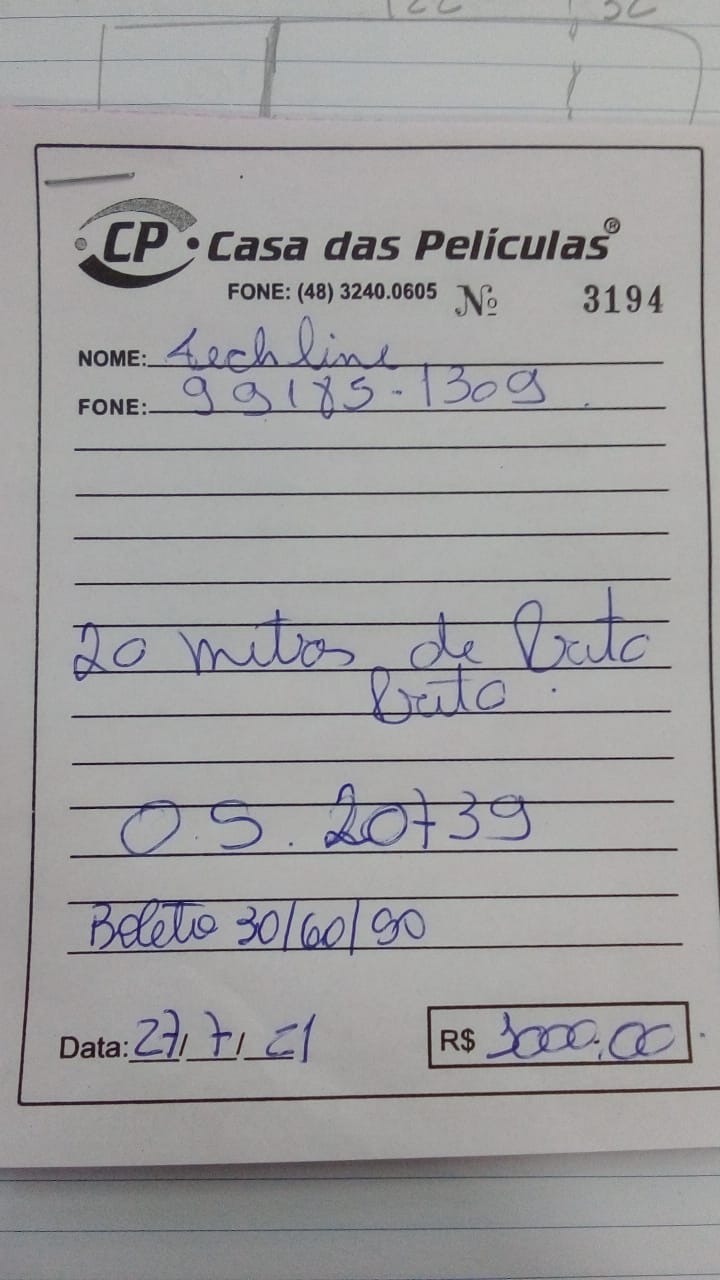 CP Casa das Películas®
FONE: (48) 3240.0605 Nº 3194
NOME: techline
FONE: 99185-1309
20 metros de
O.S. 20739
Boleto 30/60/90
Data: 27/7/21 R$ 3000,00